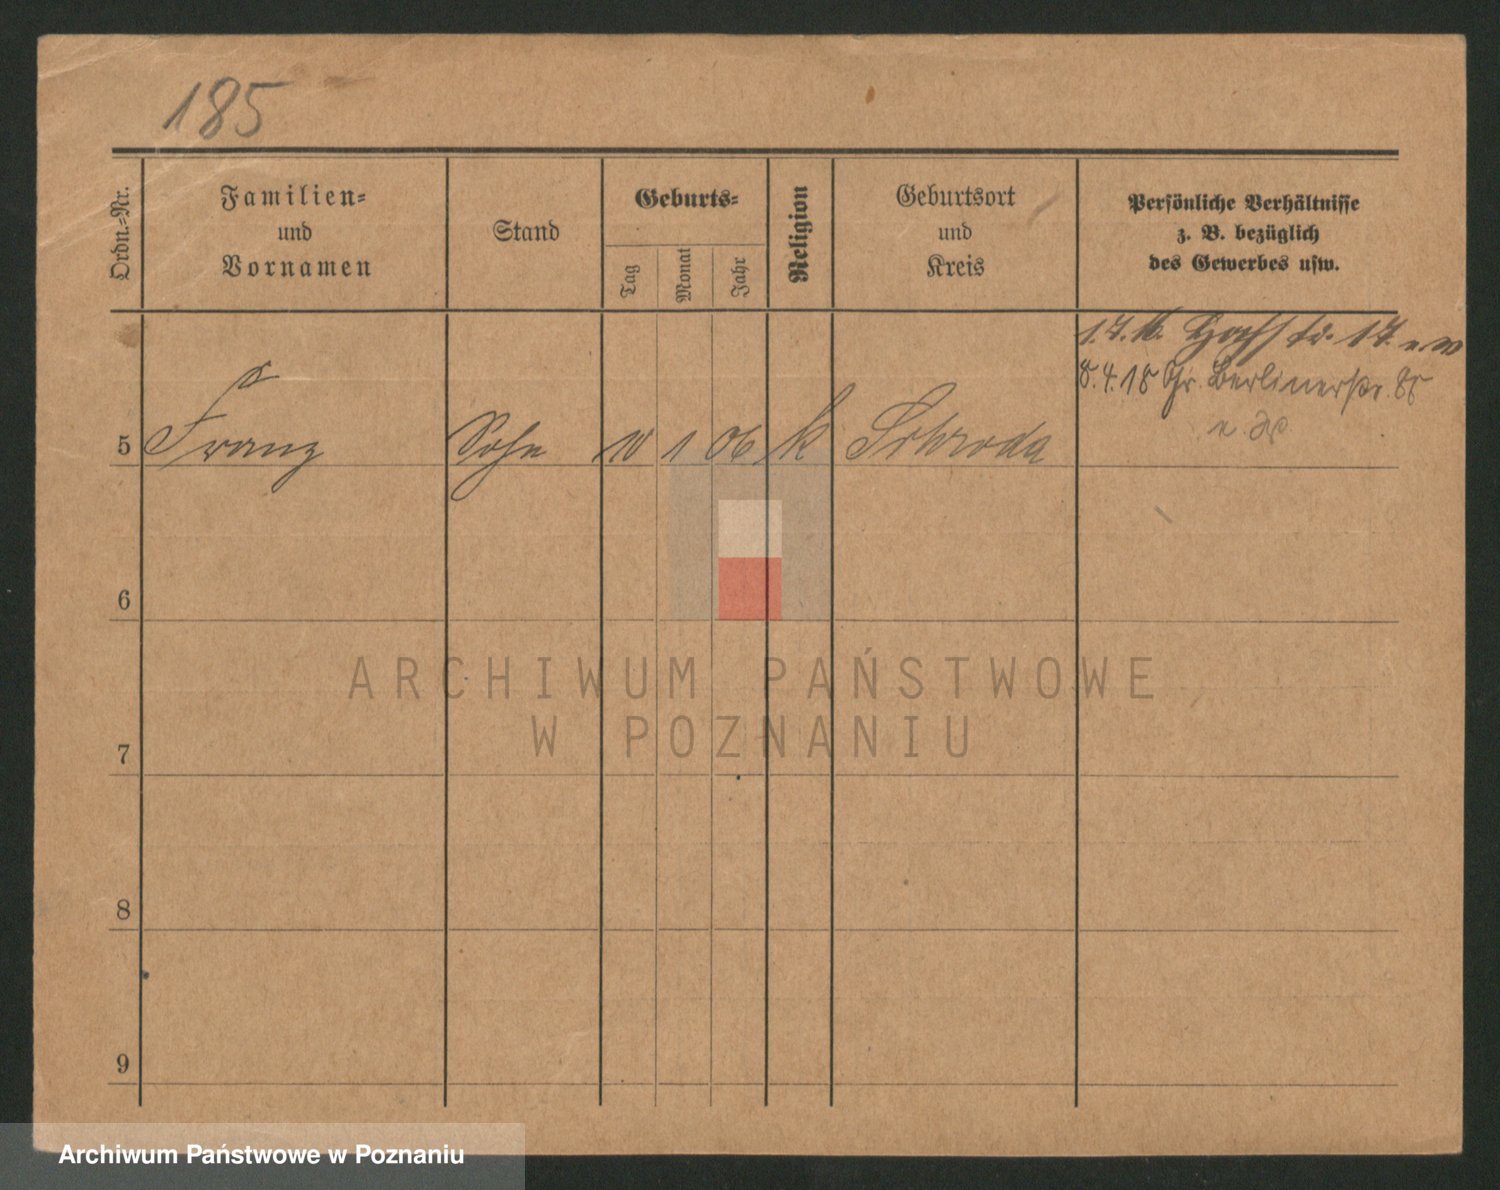 185
Ordn.=Nr.
Familien=
und
Vornamen
Stand
Geburts=
Tag
Monat
Jahr
Religion
Geburtsort
und
Kreis
Persönliche Verhältnisse
z. B. bezüglich
des Gewerbes usw.
8.4.18 Gr. Berlinerstr.
5 Franz Sohn 10 1 06 k Schroda
6
7
8
9
ARCHIWUM PAŃSTWOWE
W POZNANIU
Archiwum Państwowe w Poznaniu